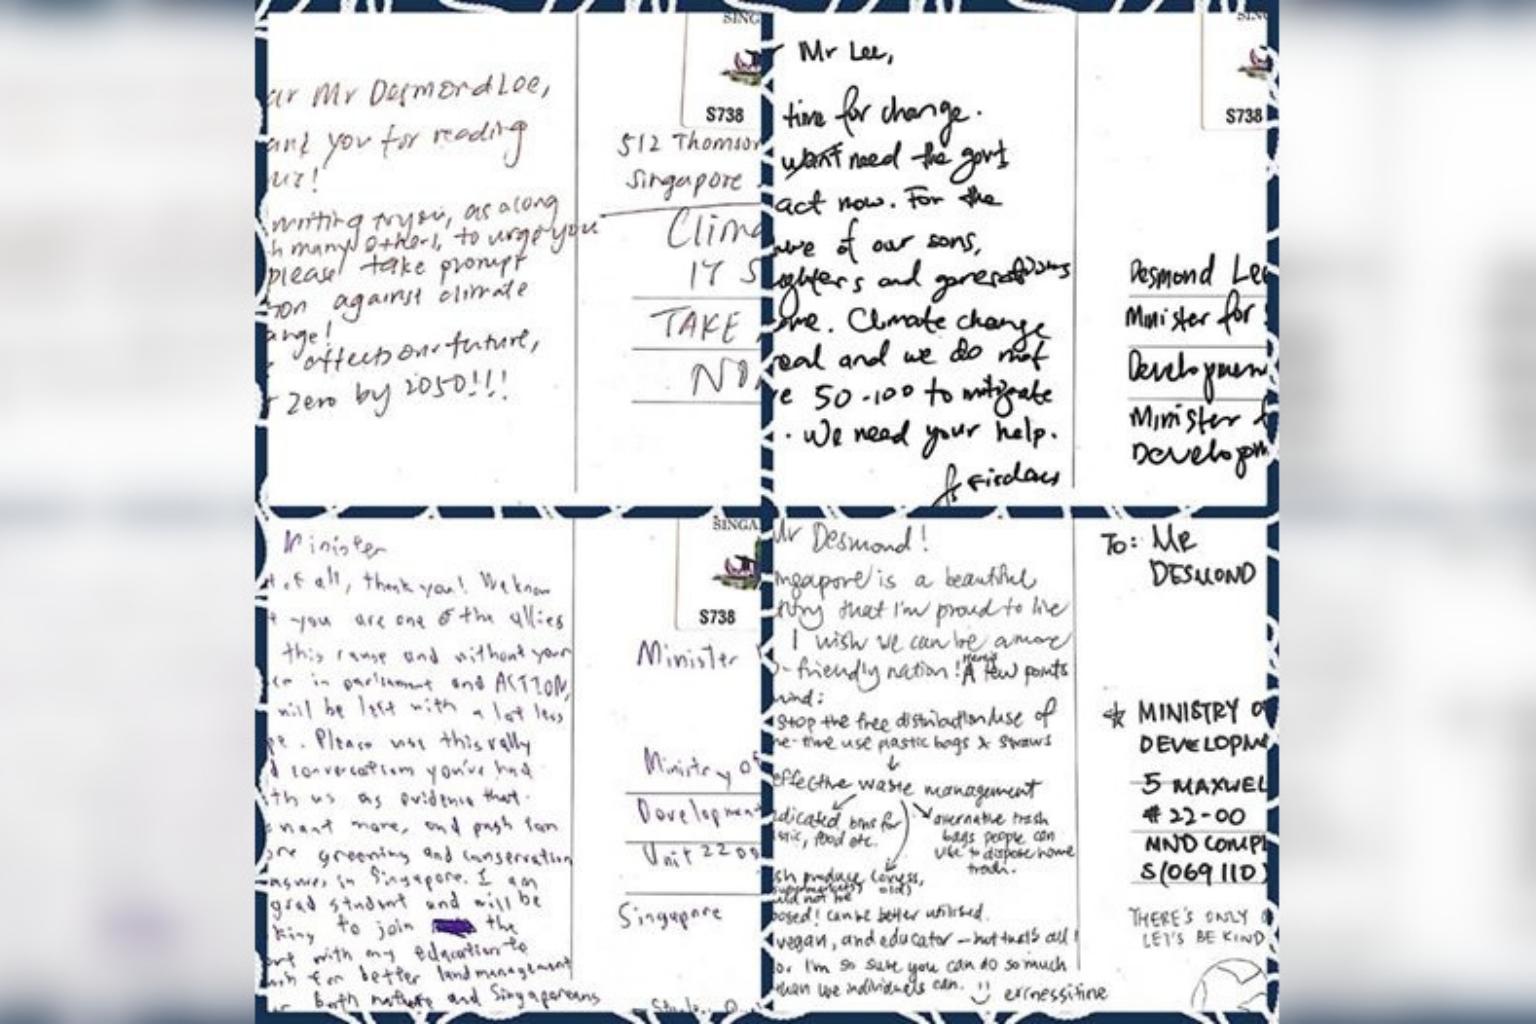 SING
S738
ar Mr Desmond Lee,
ank you for reading
512 Thomson
Singapore
writing to you, as along
h many others, to urge you
please take prompt
ion against climate
ange!
affects our future,
zero by 2050!!!
Clima
17 S
TAKE
NO
SIN
S738
Mr Lee,
time for change.
want need the govt
act now. For the
ure of our sons,
ughters and generations
ome. Climate change
real and we do not
ve 50-100 to mitigate
. We need your help.
firdaus
Desmond Lee
Minister for
Development
Minister
Developm
SINGA
S738
Minister
t of all, thank you! We know
t you are one of the allies
this range and without your
in parliament and ACTION,
will be left with a lot less
pe. Please use this rally
d conversations you've had
ith us as evidence that
want more, and push for
ore greening and conservation
in Singapore. I am
grad student and will be
king to join the
with my education to
for better land management
both nature and Singaporeans
Minister
Ministry of
Development
Unit 22 00
Singapore
Mr Desmond!
ingapore is a beautiful
ntry that I'm proud to live
I wish we can be a more
o-friendly nation! Here's A few points
mind:
stop the free distribution/use of
ne-time use plastic bags & straws
effective waste management
edicated bins for
stic, food etc.
alternative trash
bags people can
use to dispose home
trash.
sh produce
supermarkets
uld not be
posed! can be better utilised.
vegan, and educator – but that's all!
or I'm so sure you can do so much
than we individuals can. ermessitine
To: MR
DESMOND
MINISTRY O
DEVELOPME
5 MAXWEL
#22-00
MND COMPL
S(069110)
THERE'S ONLY
LET'S BE KIND